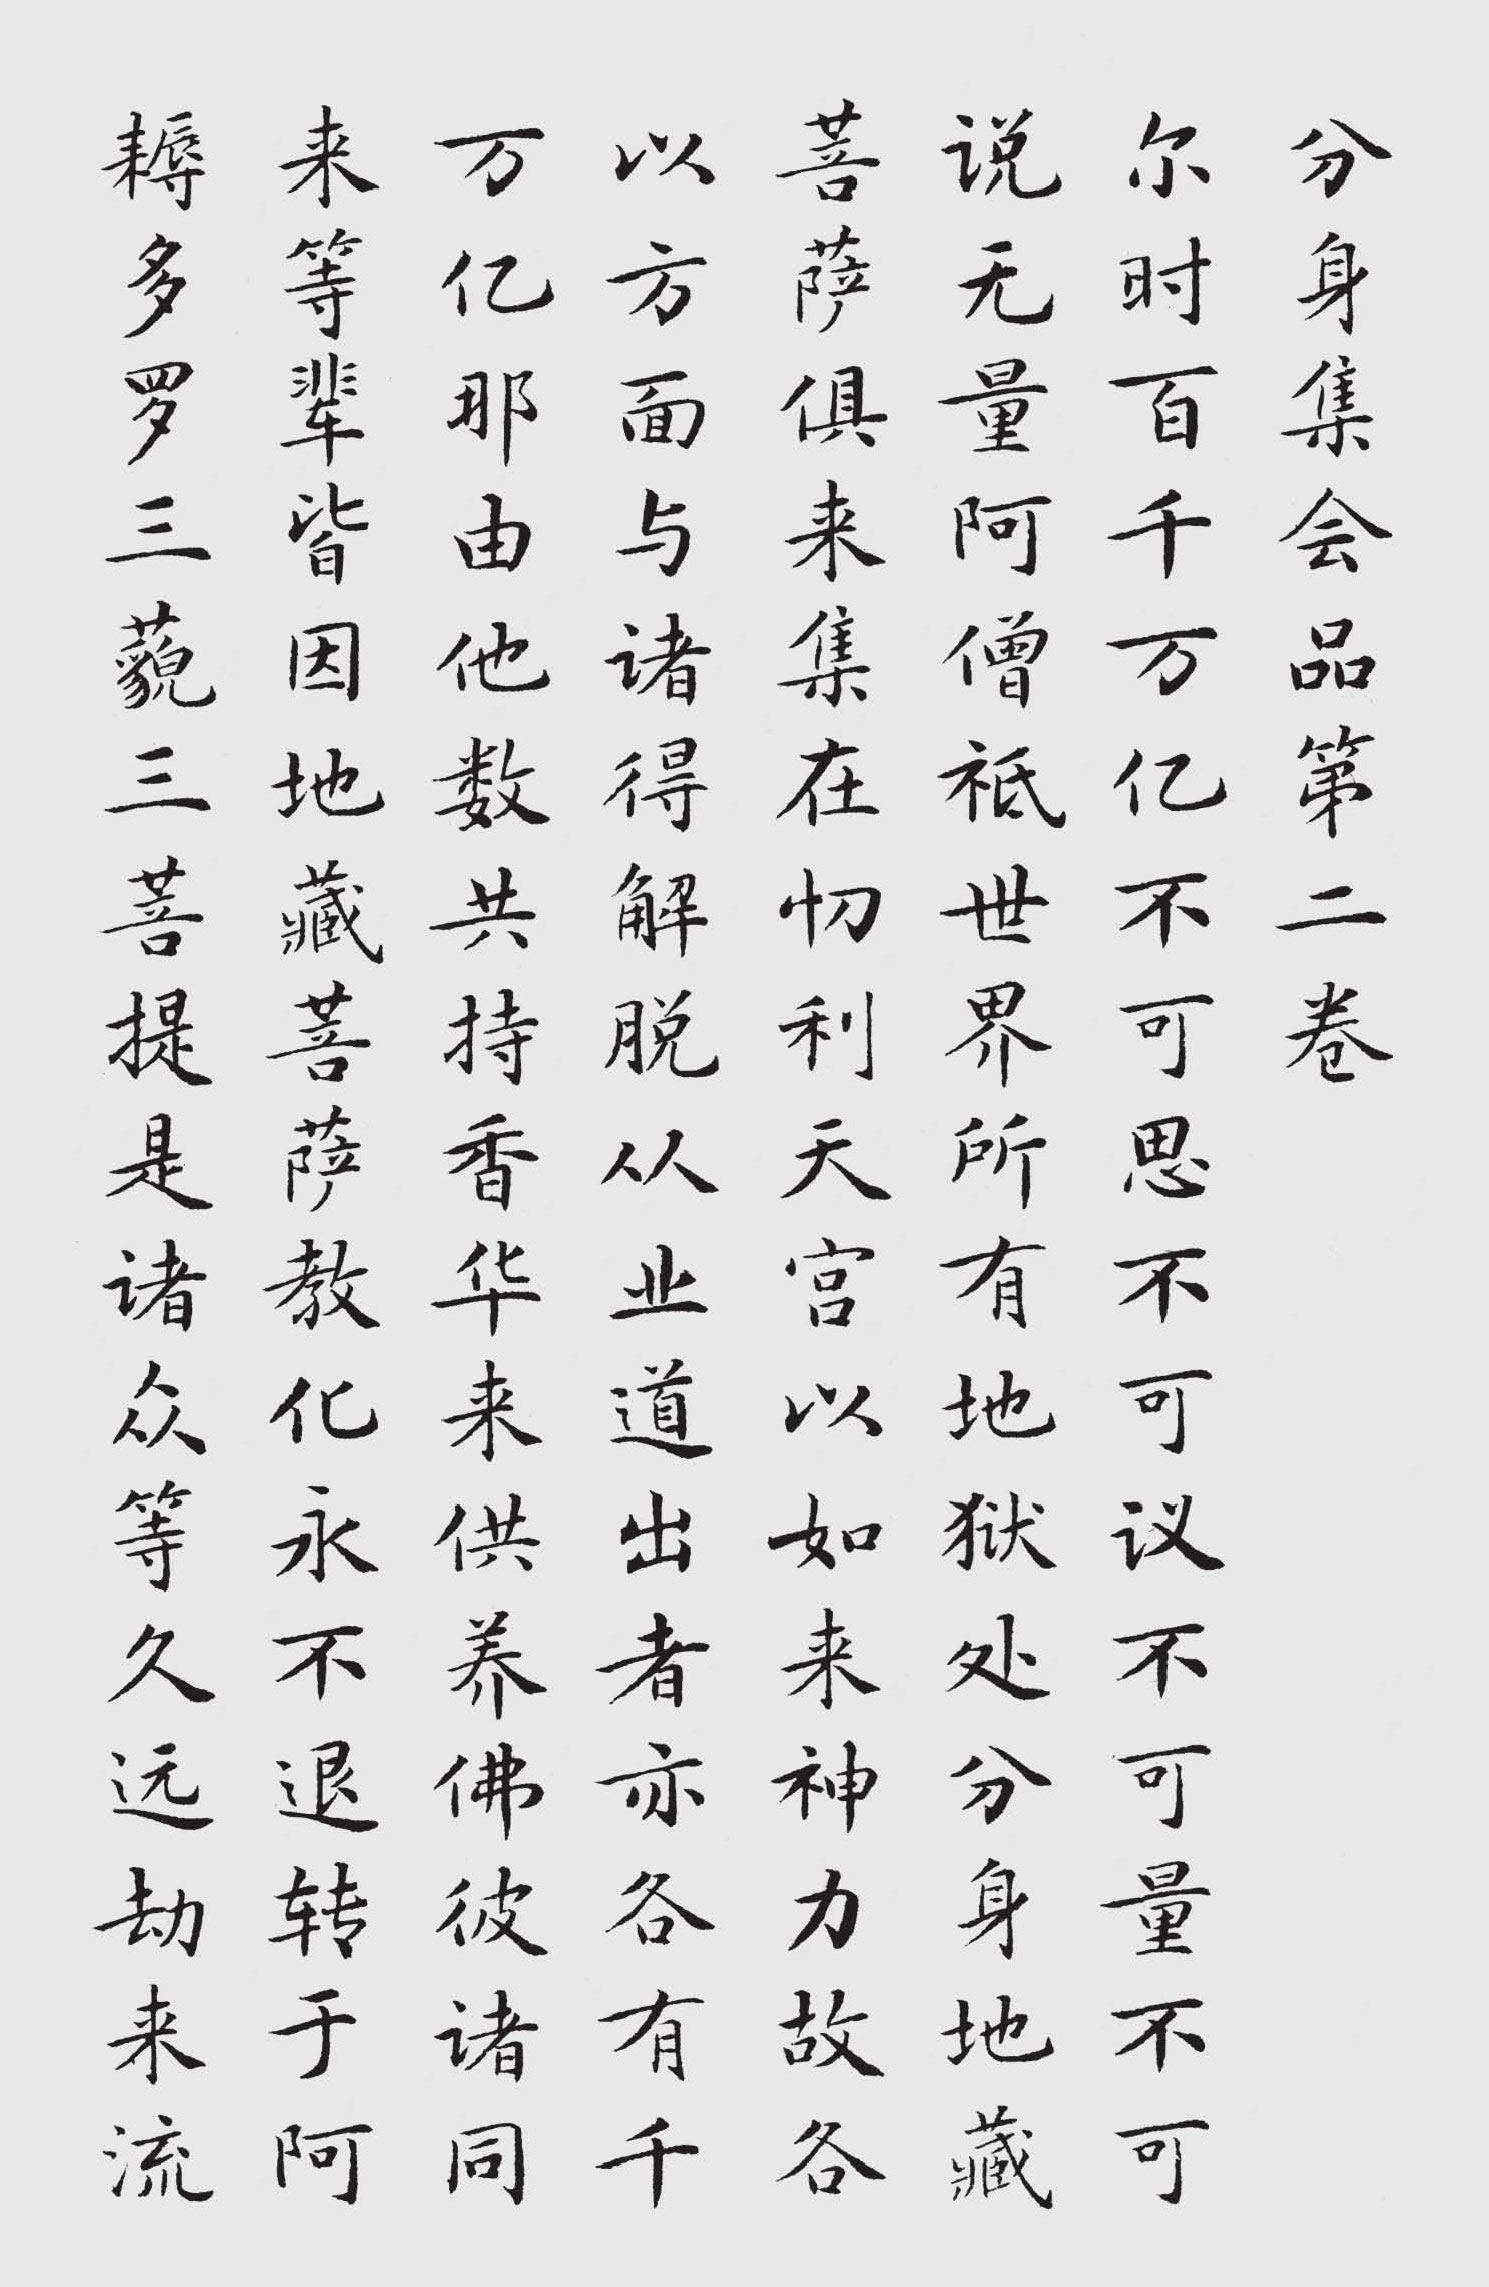 分身集会品第二卷
尔时百千万亿不可思不可议不可量不可
说无量阿僧祇世界所有地狱处分身地藏
菩萨俱来集在忉利天宫以如来神力故各
以方面与诸得解脱从业道出者亦各有千
万亿那由他数共持香华来供养佛彼诸同
来等辈皆因地藏菩萨教化永不退转于阿
耨多罗三藐三菩提是诸众等久远劫来流